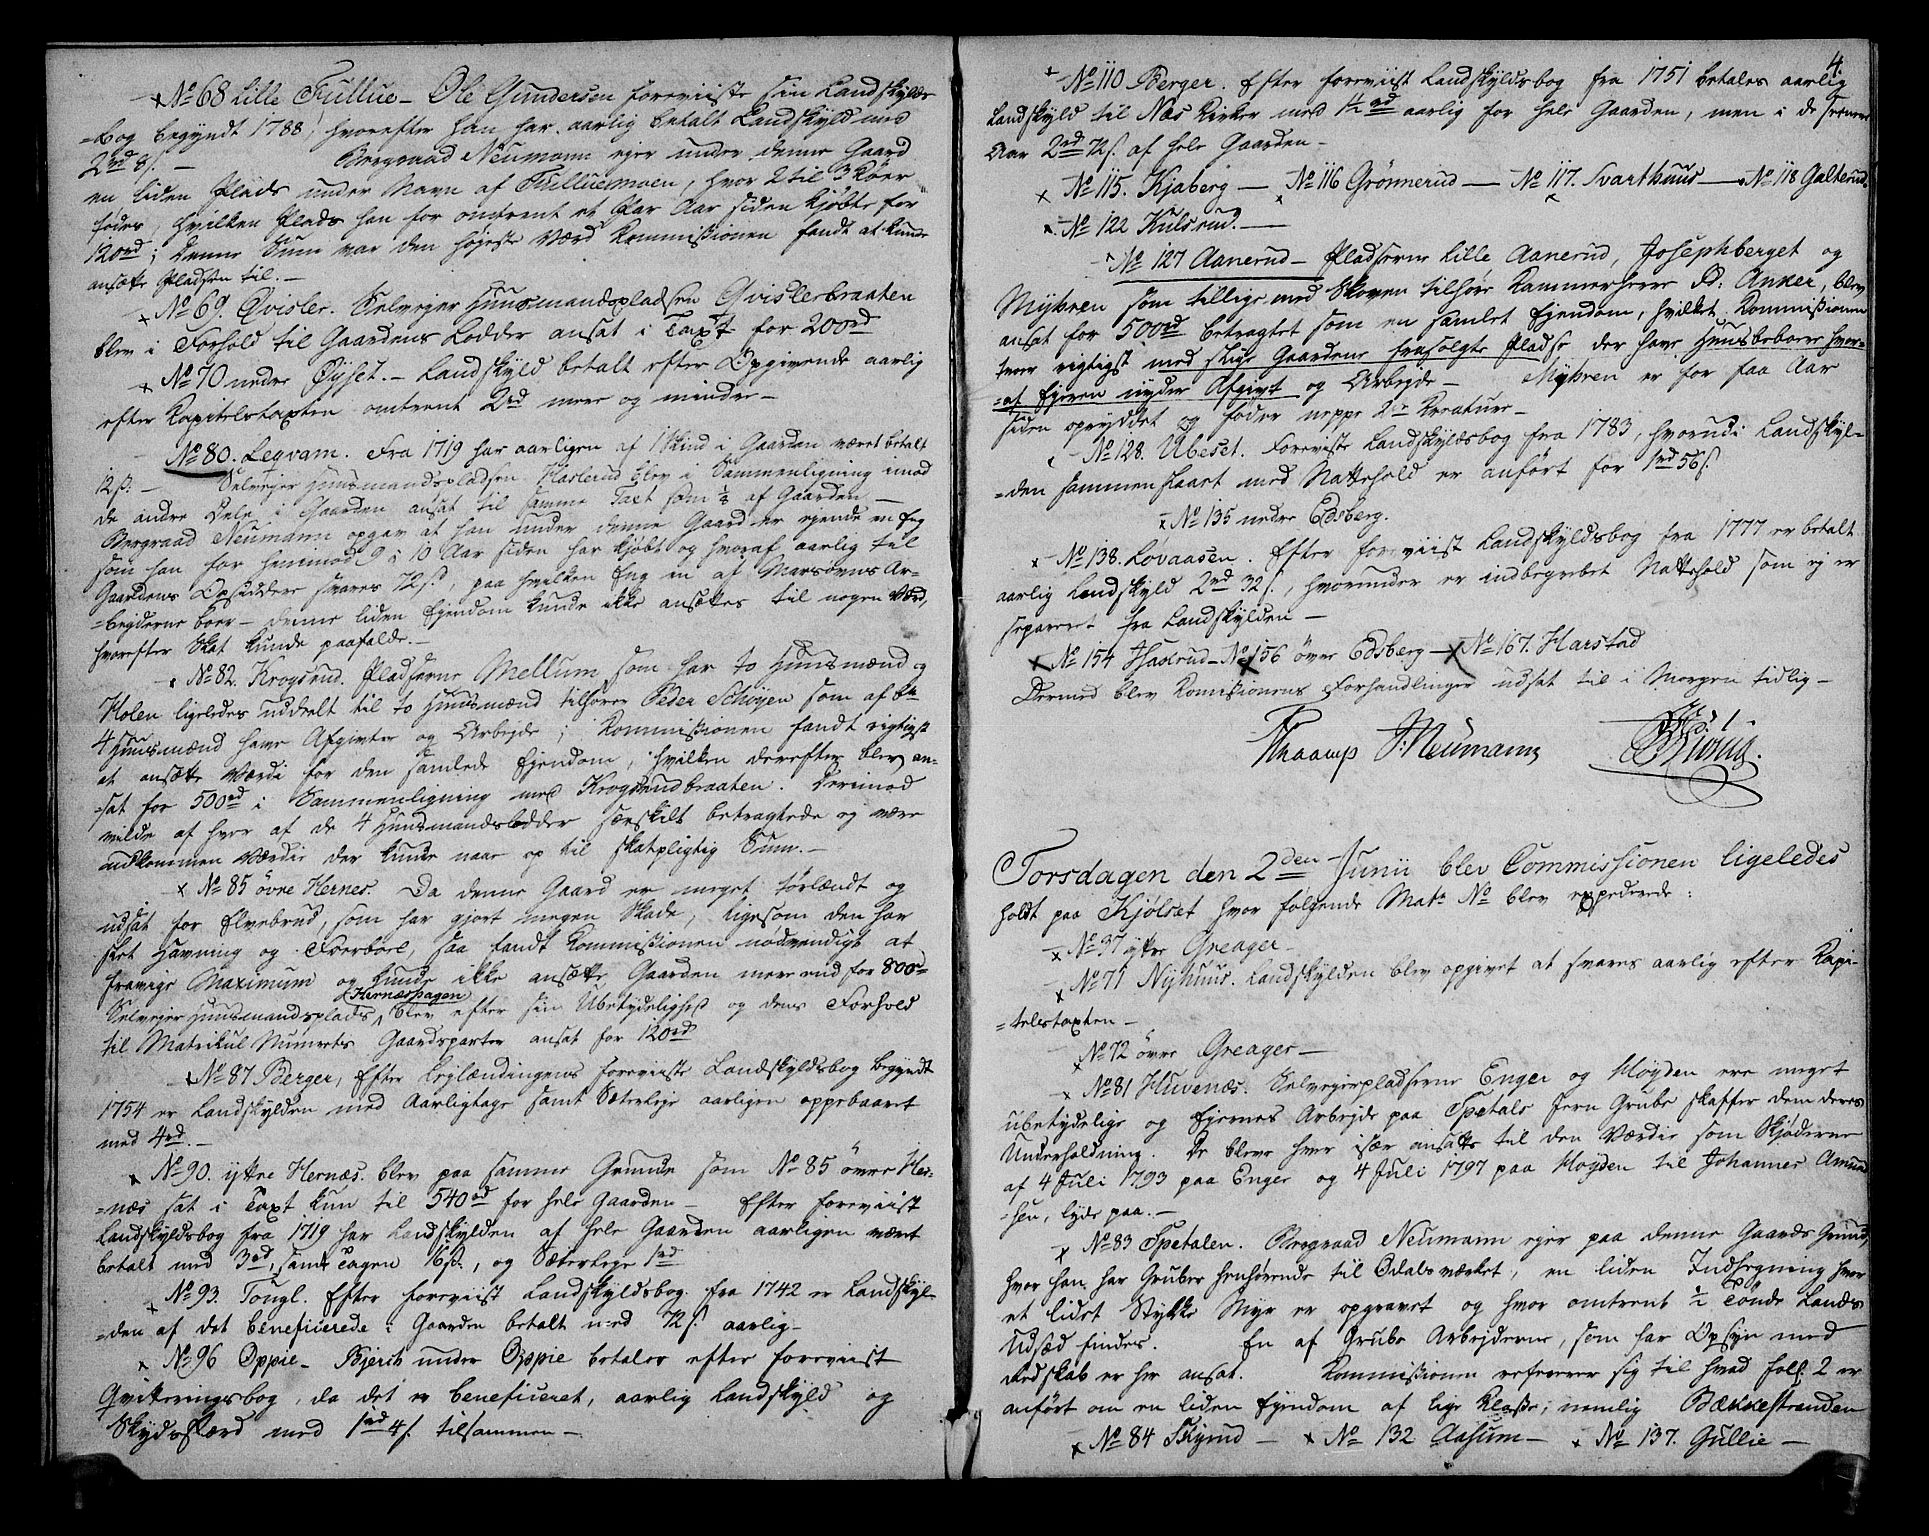 No 68 Lille Tullue – Ole Gundersen foreviiste sin Landskylds
=bog begyndt 1788, hvorefter han har aarlig betalt Landskyld med
2rd 8 s. – Bergraad Neumann ejer under denne Gaard
en liden Plads under Navn af Tulluemoen, hvor 2 til 3 Køer
fødes, hvilken Plads han for omtrent et Par Aar siden kjøbte for
120rd; denne Sum var den højeste Værd Kommissionen fandt at kunde
ansætte Pladsen til. –
No 69. Qvisler. Selvejer Huusmandspladsen Qvislerbraaten
blev i Forhold til Gaardens Lodder ansat i Taxt for 200rd
No 70 nedre Øyset. – Landskyld betalt efter Opgivende aarlig
efter Kapitelstaxten omtrent 2rd mere og mindre –
No 80. Legvam. Fra 1719 har aarligen af 1 Skind i Gaarden været betalt
12 s. – Selvejer Huusmandspladsen Haslerud blev i Sammenligning med
de andre Dele i Gaarden ansat til samme Taxt som 1/8 af Gaarden –
Bergraad Neumann opgav at han under denne Gaard er ejende en Eng
som han for henimod 9 à 10 Aar siden har kjøbt og hvoraf aarlig til
Gaardens Opsiddere svares 72 s., paa hvilken Eng en af Marsovns Ar=
=bejderne boer – denne liden Ejendom kunde ikke ansættes til nogen Værd,
hvorefter Skat kunde paafalde. –
No 82. Krogsrud. Pladserne Mellum som har to Huusmænd og
Holen ligeledes uddeelt til to Huusmænd tilhører Peder Schøyen som af de
4 Huusmænd have Afgivter og Arbejde; Kommissionen fandt rigtigst
at ansætte Værdi for den samlede Ejendom, hvilken derefter blev an=
=sat for 500rd i Sammenligning med Krogsrudbraaten. Derimod
vilde af hver af de 4 Huusmandslodder særskilt betragtede og være
udkommen Værdie der kunde naae op til skatpligtig Sum. –
No 85 övre Hernes. Da denne Gaard er meget tørlændt og
udsat for Elvebrud, som har gjort megen Skade, ligesom den har
slet Havning og Foerbore, saa fandt Kommissionen nødvendigt at
fravige Maximum og kunde ikke ansætte Gaarden mere end for 800rd
Selvejer Huusmandsplads Hernæshagen blev efter sin Ubetydelighed og dens Forhold
til Matrikul Numerets Gaardsparter ansat for 120rd
No 87 Berger, Efter Lejlændingens foreviiste Landskyldsbog begyndt
1754 er Landskylden med Aarligtage samt Sæterleje aarligen oppebaaret
med 4rd. –
No 90. ytre Hernæs. blev paa samme Grunde som No 85 övre Her=
=næs sat i Taxt kun til 540rd for hele Gaarden – Efter foreviist
Landskyldsbog fra 1719 har Landskylden af hele Gaarden aarligen været
betalt med 3rd, samt Tagen 16 s., og Sæterleje 1rd
No 93. Tongl. Efter foreviist Landskyldsbog fra 1742 er Landskyl=
=den af det beneficerede i Gaarden betalt med 72 s. aarlig –
No 96 Oppie – Bjerik under Oppie betaler efter foreviist
Qvitteringsbog, da det er beneficeret, aarlig Landskyld og
Skydsfærd med 1rd 4 s. tilsammen –
4.
No 110 Berger. Efter foreviist Landskyldsbog fra 1751 betales aarlig
Landskyld til Næs Kirke med 1 1/2rd aarlig for hele Gaarden, men i de senere
Aar 2rd 72 s. af hele Gaarden –
No 115. Kjaberg – No 116 Grønnerud – No 117. Svarthuus – No 118 Galterud
No 122 Kulsrud. –
No 127 Aanerud – Pladserne Lille Aanerud, Josephberget og
Myhren som tillige med Skoven tilhøre Kammerherre Pd: Anker, blev
ansat for 500rd betragtet som en samlet Ejendom, hvilket Kommissionen
troer rigtigst med slige Gaardene frasolgte Pladse der have Huusbeboere hvor=
=af Ejeren nyder Afgivt og Arbejde – Myhren er for faa Aar
siden opryddet og føder neppe 2de Kreature –
No 128. Ubeset. Foreviste Landskyldsbog fra 1783, hvorudi Landskyl=
=den sammenslaaet med Nattehold er anført for 1rd 56 s.
No 135 nedre Edsberg.
No 138. Løvaasen. Efter foreviist Landskyldsbog fra 1777 er betalt
aarlig Landskyld 2rd 32 s., hvorunder er indbegrebet Nattehold som ej er
separeret fra Landskylden –
No 154 Haserud – No 156 övre Edsberg – No 167. Harstad
Dermed blev Komissionens Forhandlinger udsat til i Morgen tidlig –
Thaamp J. Neumann
Torsdagen den 2den Junii blev Commissionen ligeledes
holdt paa Kjølset hvor følgende Matr No blev expederede:
No 37 ytre Greager –
No 71 Nyhuus. Landskylden blev opgivet at svares aarlig efter Kapi=
=telstaxten –
No 72 övre Greager –
No 81 Huvenæs. Selvejerpladserne Enger og Moyden ere meget
ubetydelige og Ejernes Arbejde paa Spetals Jern Grube skaffer dem deres
Underholdning. De bleve hver især ansatte til den Værdie som Skjøderne
af 4 Juli 1793 paa Enger og 4 Juli 1797 paa Moyden til Johannes Amund=
=sen, lyde paa. –
No 83 Spetalen. Bergraad Neumann ejer paa denne Gaards Grund,
hvor han har Gruber henhørende til Odalsværket, en liden Indhegning hvor
et lidet Stykke Myr er opgravet og hvor omtrent 1/2 Tønde Lands
Udsæd findes. En af Grube Arbejderne, som har Opsyn med
Redskab er her ansat. Kommissionen refererer sig til hvad Foll: 2 er
anført om en liden Ejendom af lige Klasse; nemlig Bækkestranden
No 84 Skyrud – No 132 Aasum – No 137. Gullie –